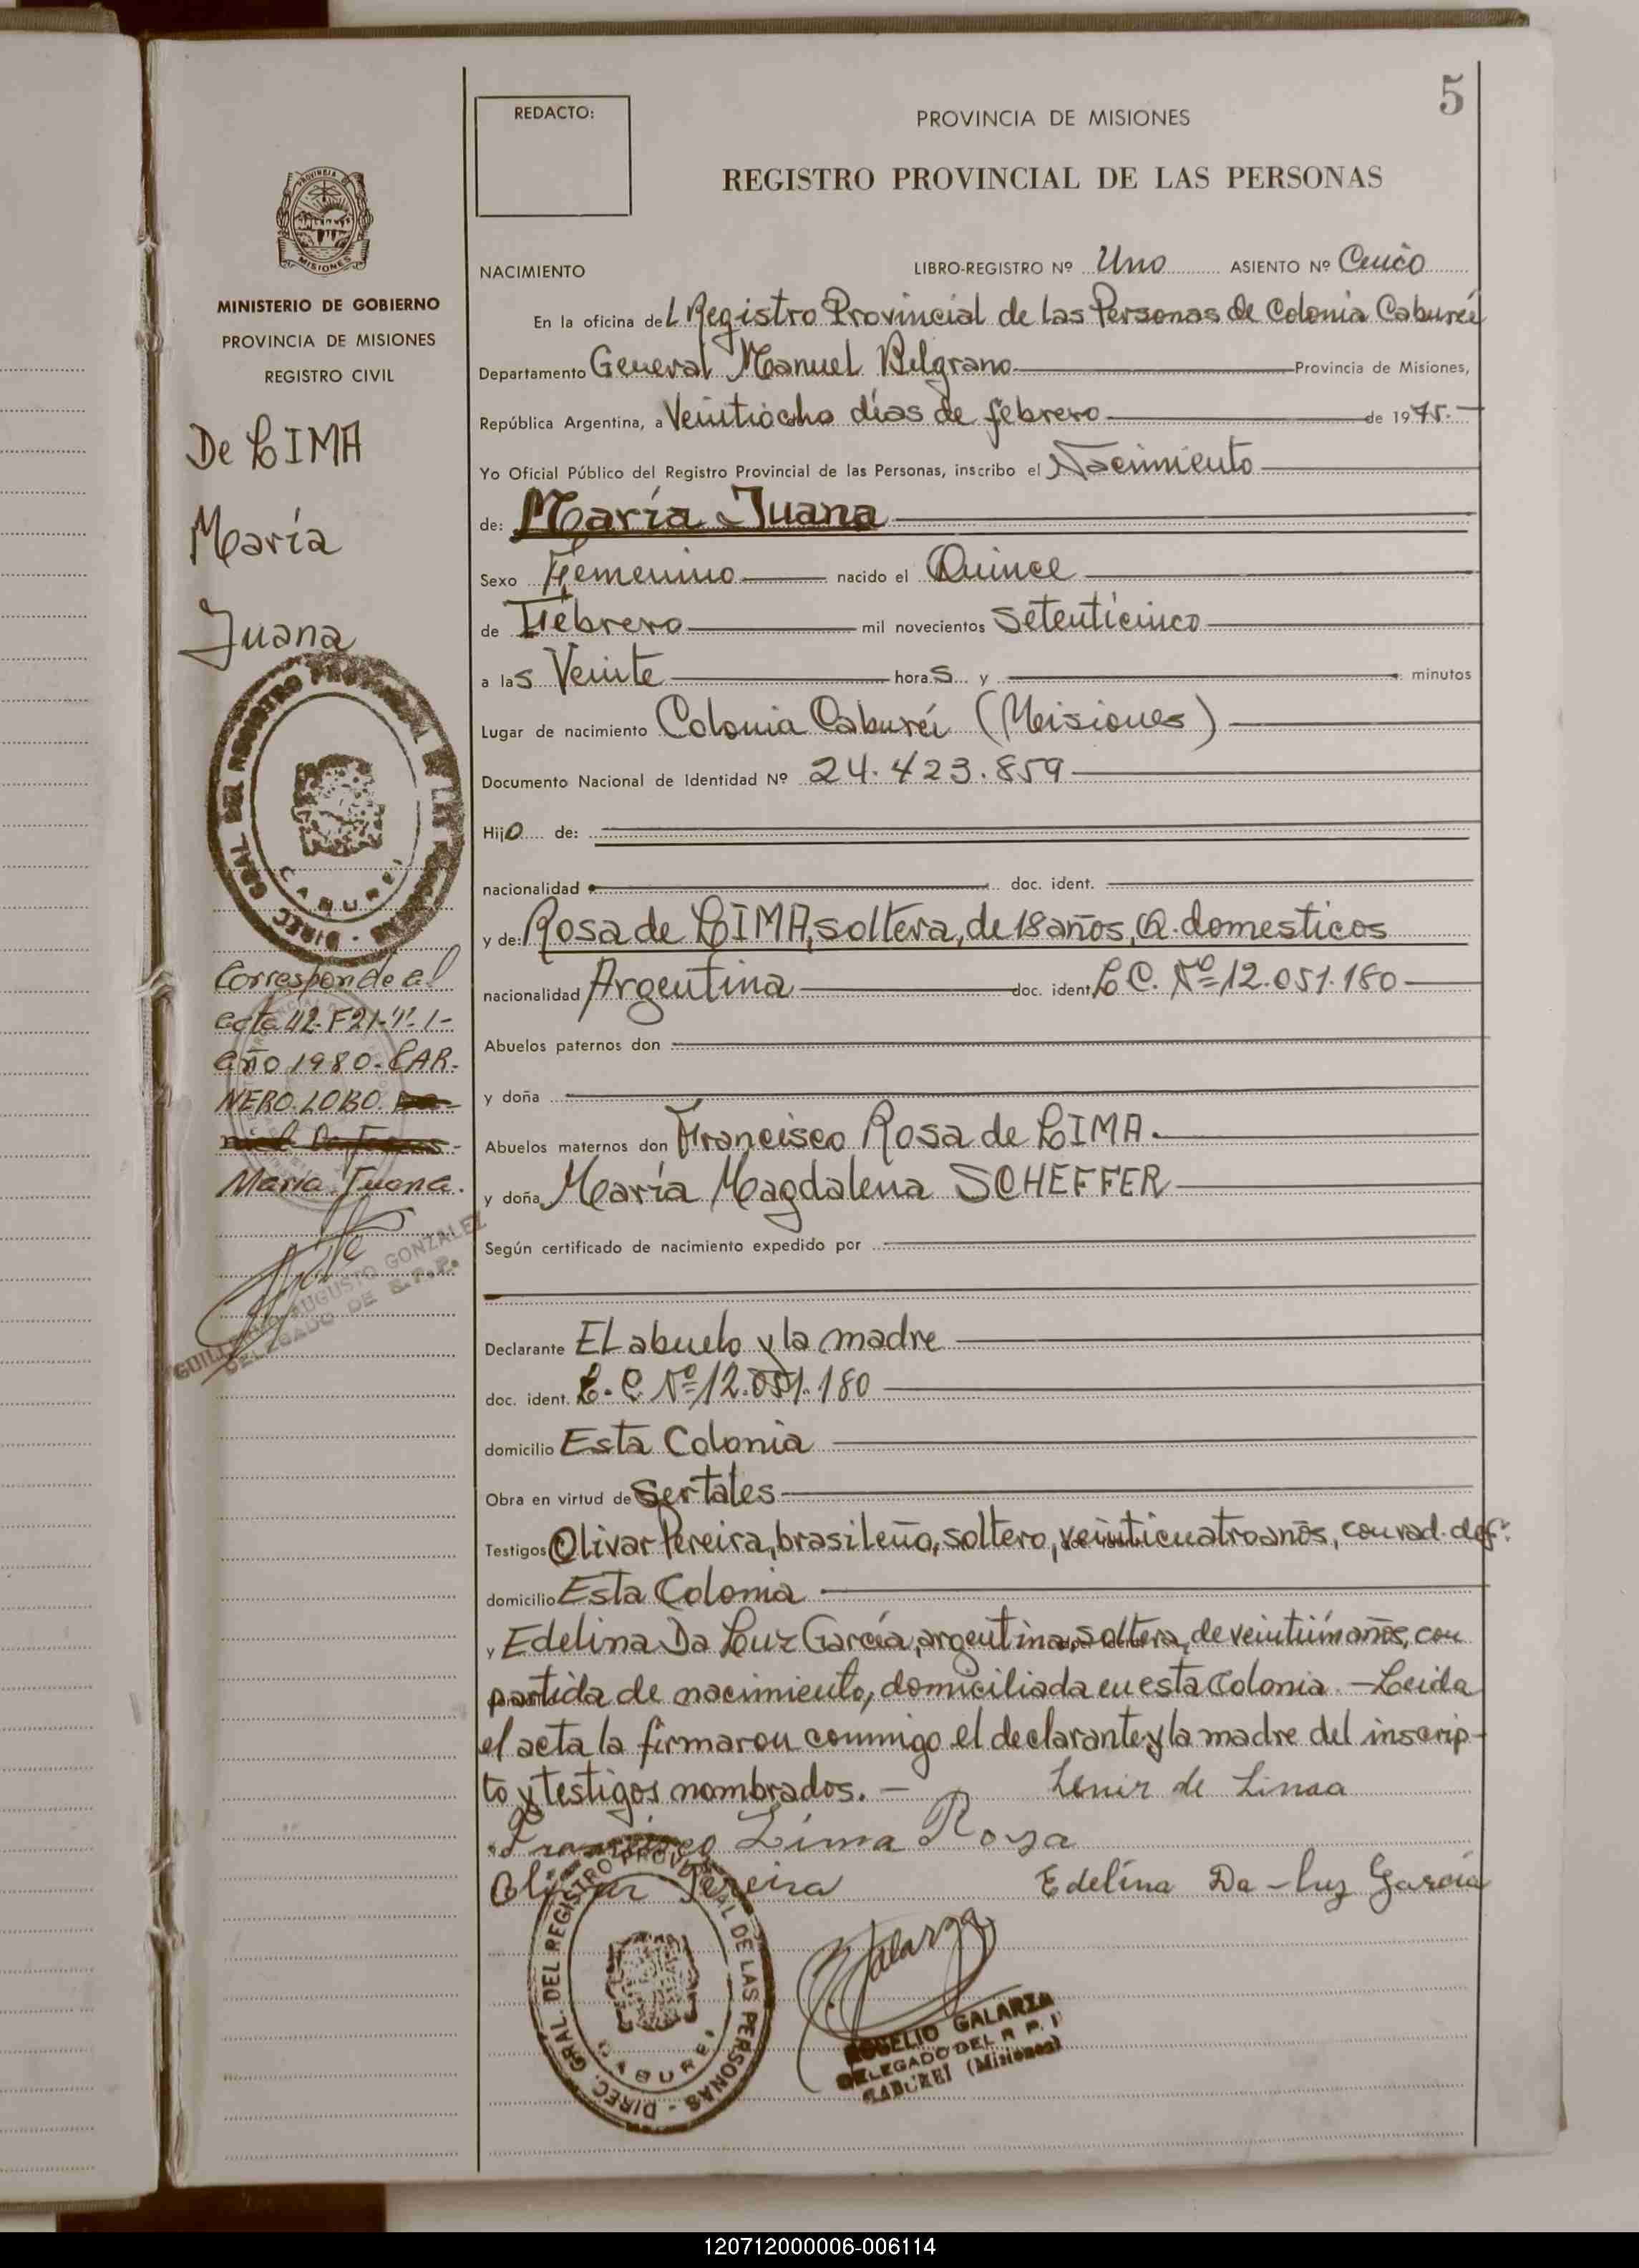 5
REDACTO:
PROVINCIA DE MISIONES
REGISTRO PROVINCIAL DE LAS PERSONAS
PROVINCIA DE
MISIONES
MINISTERIO DE GOBIERNO
PROVINCIA DE MISIONES
REGISTRO CIVIL
De LIMA
María
Juana
CABUREI
Corresponde al
acta 42-F21-Tº 1-
año 1980-CAR-
NERO LOBO
María Juana.
AUGUSTO GONZALEZ
DELEGADO DE R.P.P.
NACIMIENTO LIBRO-REGISTRO Nº Uno ASIENTO Nº Cinco
En la oficina del Registro Provincial de las Personas de Colonia Cabureí
Departamento General Manuel Belgrano Provincia de Misiones,
República Argentina, a Veintiocho días de febrero de 1975.-
Yo Oficial Público del Registro Provincial de las Personas, inscribo el Nacimiento
de: María Juana
Sexo Femenino nacido el Quince
de Febrero mil novecientos setenticinco
a las Veinte horas y minutos
Lugar de nacimiento Colonia Cabureí (Misiones)
Documento Nacional de Identidad Nº 24.423.859
Hijo de:
nacionalidad doc. ident.
y de: Rosa de LIMA, soltera, de 18 años, Q. domesticos
nacionalidad Argentina doc. ident. L C. Nº 12.051.180
Abuelos paternos don
y doña
Abuelos maternos don Francisco Rosa de LIMA.
y doña María Magdalena SCHEFFER
Según certificado de nacimiento expedido por
Declarante El abuelo y la madre
doc. ident. L. C. Nº 12.051.180
domicilio Esta Colonia
Obra en virtud de Ser tales
Testigos Olivar Pereira, brasileño, soltero, veinticuatro años, con rad. def.
domicilio Esta Colonia
y Edelina Da Luz García, argentina, soltera, de veintiún años, con
partida de nacimiento, domiciliada en esta Colonia.-Leida
el acta la firmaron conmigo el declarante y la madre del inscrip-
to y testigos nombrados.-
Lenir de Limaa
Francisco Lima Rosa
Olivar Pereira Edelina Da-luz García
DIREC. GRAL. DEL REGISTRO PROVINCIAL DE LAS PERSONAS -
CABUREI
Galarza
ROGELIO GALARZA
DELEGADO DEL R. P. P.
CABUREI (Misiones)
120712000006-006114